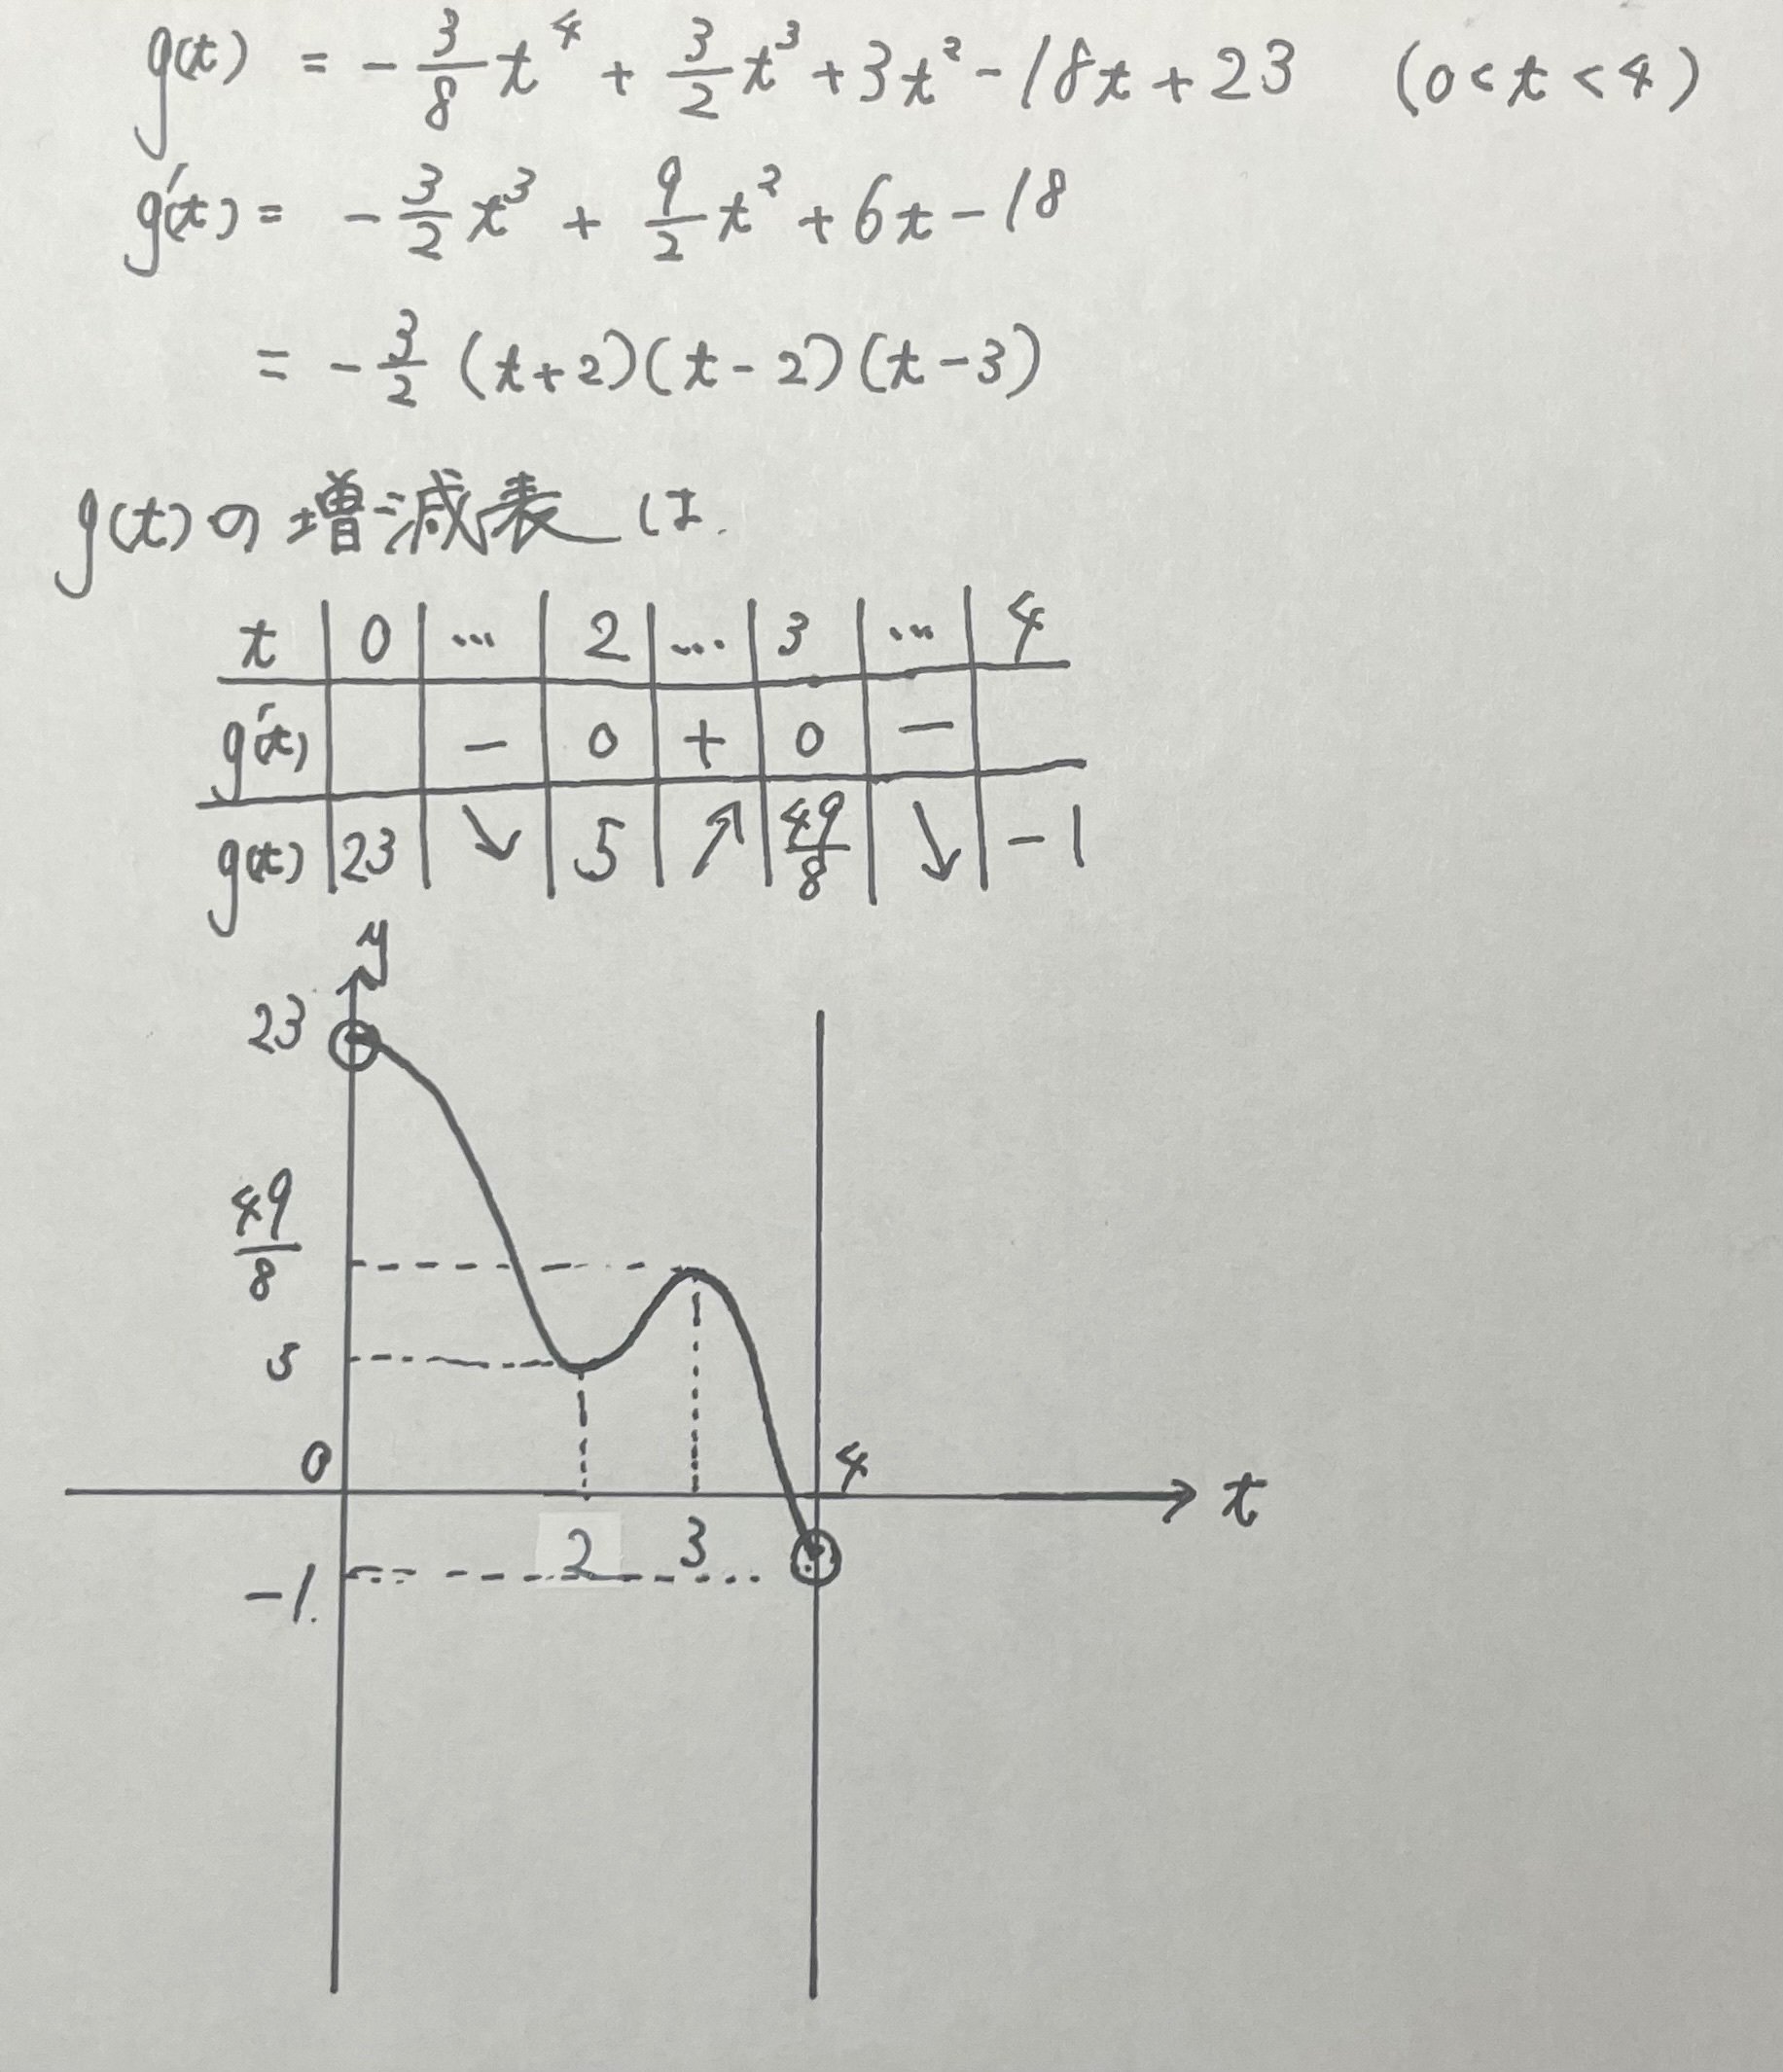 g(t) = -3/8 t⁴ + 3/2 t³ + 3t² - 18t + 23 (0 < t < 4)
g'(t) = -3/2 t³ + 9/2 t² + 6t - 18
= -3/2 (t+2)(t-2)(t-3)
g(t)の増減表は.
t | 0 | ... | 2 | ... | 3 | ... | 4
g'(t) | | - | 0 | + | 0 | - |
g(t) | 23 | ↘ | 5 | ↗ | 49/8 | ↘ | -1
y
23
49/8
5
0
4
t
2
3
-1.